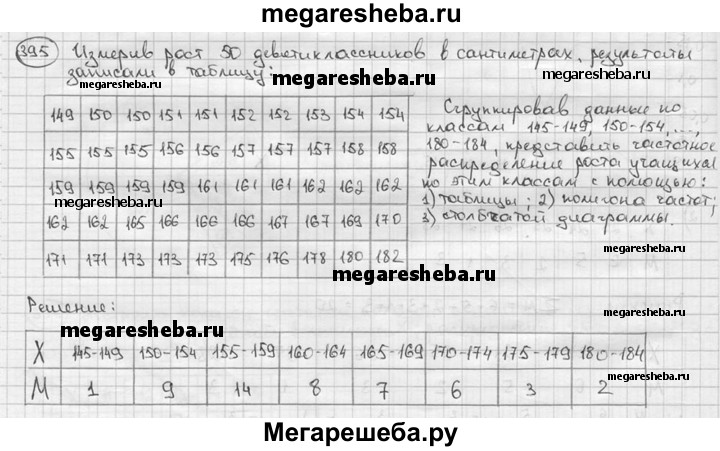 megaresheba.ru
395 Измерив рост 50 девятиклассников в сантиметрах, результаты
записали в таблицу:
megaresheba.ru
megaresheba.ru
149 150 150 151 151 152 152 153 154 154
155 155 155 156 156 157 157 157 158 158
159 159 159 159 161 161 161 162 162 162
162 162 165 166 166 166 167 167 169 170
171 171 173 173 173 175 176 178 180 182
Сгруппировав данные по
классам 145-149, 150-154, ...,
180-184, представить частотное
распределение роста учащихся
по этим классам с помощью:
1) таблицы; 2) полигона частот;
3) столбчатой диаграммы.
megaresheba.ru
megaresheba.ru
megaresheba.ru
Решение:
megaresheba.ru
X 145-149 150-154 155-159 160-164 165-169 170-174 175-179 180-184
M 1 9 14 8 7 6 3 2
megaresheba.ru
megaresheba.ru
Мегарешеба.ру